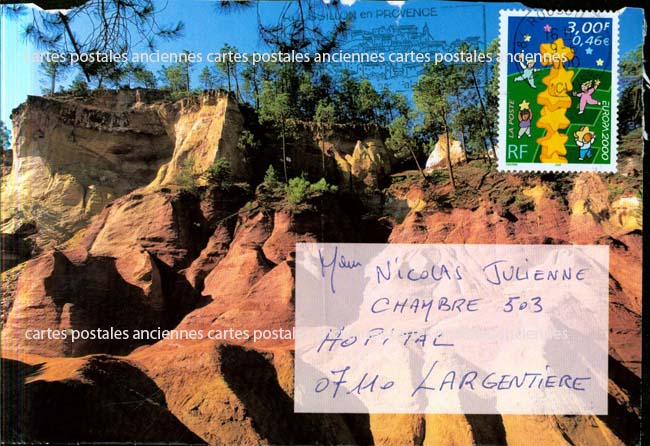 ROUSSILLON en PROVENCE
3,00F
0,46€
LA POSTE
EUROPA 2000
RF
cartes postales anciennes cartes postales anciennes cartes postales anciennes
Mr NICOLAS JULIENNE
CHAMBRE 503
HOPITAL
07110 LARGENTIERE
cartes postales anciennes cartes postales anciennes cartes postales anciennes